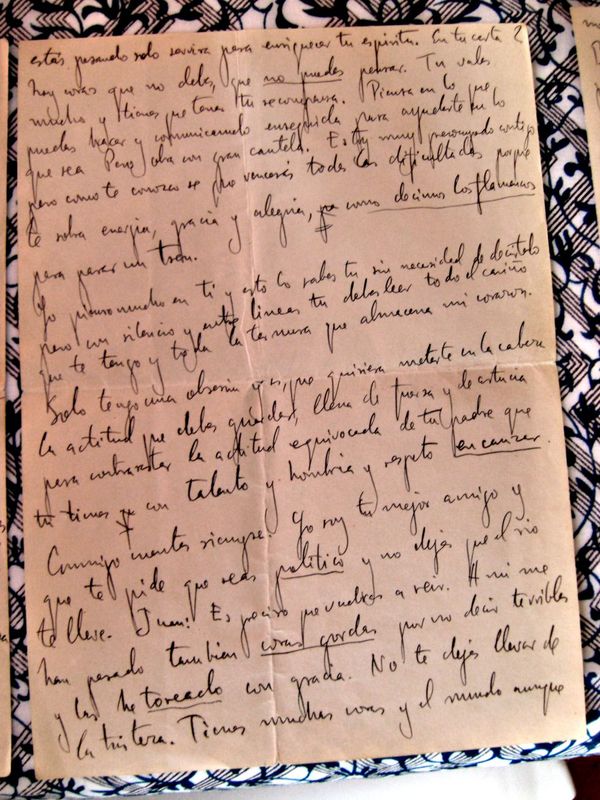 estás pasando solo servira para enriquecer tu espiritu. En tu carta 2
hay cosas que no debes, que no puedes pensar. Tu vales
mucho y tienes que tener tu recompensa. Piensa en lo que
puedas hacer y comunicamelo enseguida para ayudarte en lo
que sea Pero obra con gran cautela. Estoy muy preocupado contigo
pero como te conozco se que vencerás todas las dificultades porque
te sobra energia, gracia y alegria, como decimos los flamencos
para parar un tren.
Yo pienso mucho en ti y esto lo sabes tu sin necesidad de decirtelo
pero con silencio y entre lineas tu debes leer todo el cariño
que te tengo y toda la ternura que almacena mi corazon.
Solo tengo una obsesión y es, que quisiera meterte en la cabeza
la actitud que debes guardar, llena de fuerza y de astucia
para contrarestar la actitud equivocada de tu padre que
tu tienes que con talento y hombria y respeto encauzar.
Conmigo cuentas siempre. Yo soy tu mejor amigo y
que te pide que seas politico y no dejes que el rio
te lleve. Juan! Es preciso que vuelvas a reir. A mi me
han pasado tambien cosas gordas por no decir terribles
y las he toreado con gracia. No te dejes llevar de
la tristeza. Tienes muchas cosas y el mundo aunque